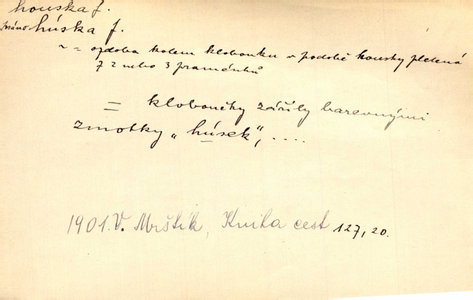 houska f.
húska f.
~ = ozdoba kolem klobouku v podobě housky pletená
z 2 nebo 3 pramenků
= kloboučky zářily barevnými
zmotky „húsek", ....
1901 V. Mrštík, Kniha cest 127, 20.